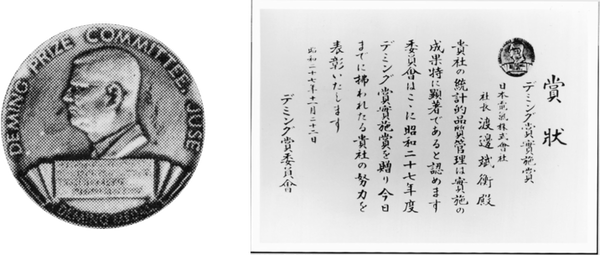 DEMING PRIZE COMMITTEE, JUSE
賞狀
デミング賞實施賞
日本電氣株式會社
社長 渡邊斌衡殿
貴社の統計的品質管理は實施の
成果特に顯著であると認めます
委員會はここに昭和二十七年度
デミング賞實施賞を贈り今日
までに拂われたる貴社の努力を
表彰いたします
昭和二十七年十一月二十二日
デミング賞委員會